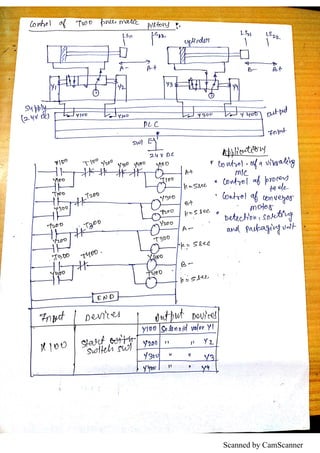 Control of Two pneumatic pistons :-
LS11 LS22 cylinder LS11 LS22
A- A+ B- B+
Y1 Y2 Y3 Y4
Supply
(24V DC) Y100 Y200 Y300 Y400 Output
PLC
Input
SW1
24V DC
Application
* Control of a vibrating
m/c
* Control of process
* Control of conveyor
motor
* Detection, selecting
and packaging unit
X100 T300 Y200 Y400 Y100 A+
Y100 T100
K=5sec
T100 T200 Y300 B+
Y300 T200 K=5sec
T200 T300 Y200 A-
Y200 T300 K=5sec
T300 T400 Y400 B-
Y400 T400 K=5sec
END
Input Devices Output Devices
X100 Start switch Y100 Solenoid valve Y1
switch SW1 Y200 " " Y2
Y300 " " Y3
Y400 " " Y4
Scanned by CamScanner